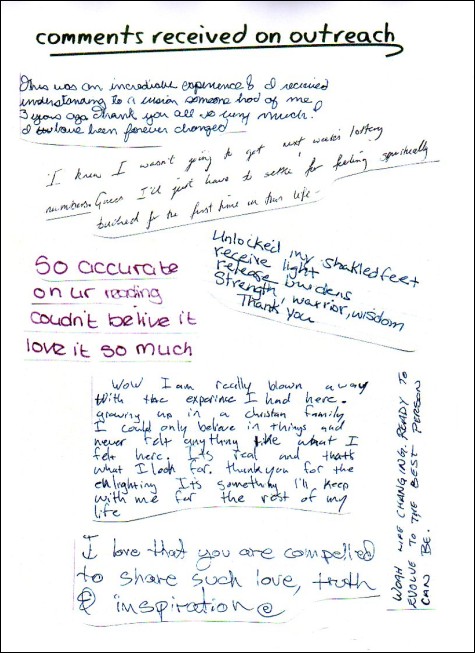 comments received on outreach
This was an incredible experience & I received
understanding to a vision someone had of me
3 years ago. Thank you all so very much!
I have been forever changed
I knew I wasn't going to get next week's lottery
numbers. Guess I'll just have to settle for feeling spiritually
touched for the first time in this life
Unlocked my shakled feet
receive light
release burdens
Strength, warrior, wisdom
Thank you
So accurate
on ur reading
coudn't belive it
love it so much
Wow I am really blown away
with the experince I had here.
growing up in a christan family
I could only believe in things and
never felt anything like what I
felt here. It's real and thats
what I look for. thankyou for the
enlighting Its something i'll keep
with me for the rest of my
life
WOAH LIFE CHANGING. READY TO
EVOLVE TO THE BEST PERSON I
CAN BE.
I love that you are compelled
to share such love, truth
& inspiration